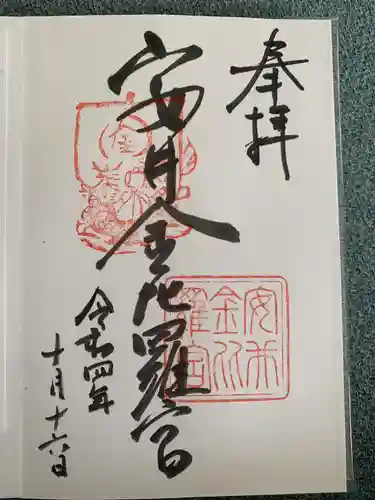 奉拝
安井金比羅宮
安井
金比
羅宮
令和四年
十月十六日